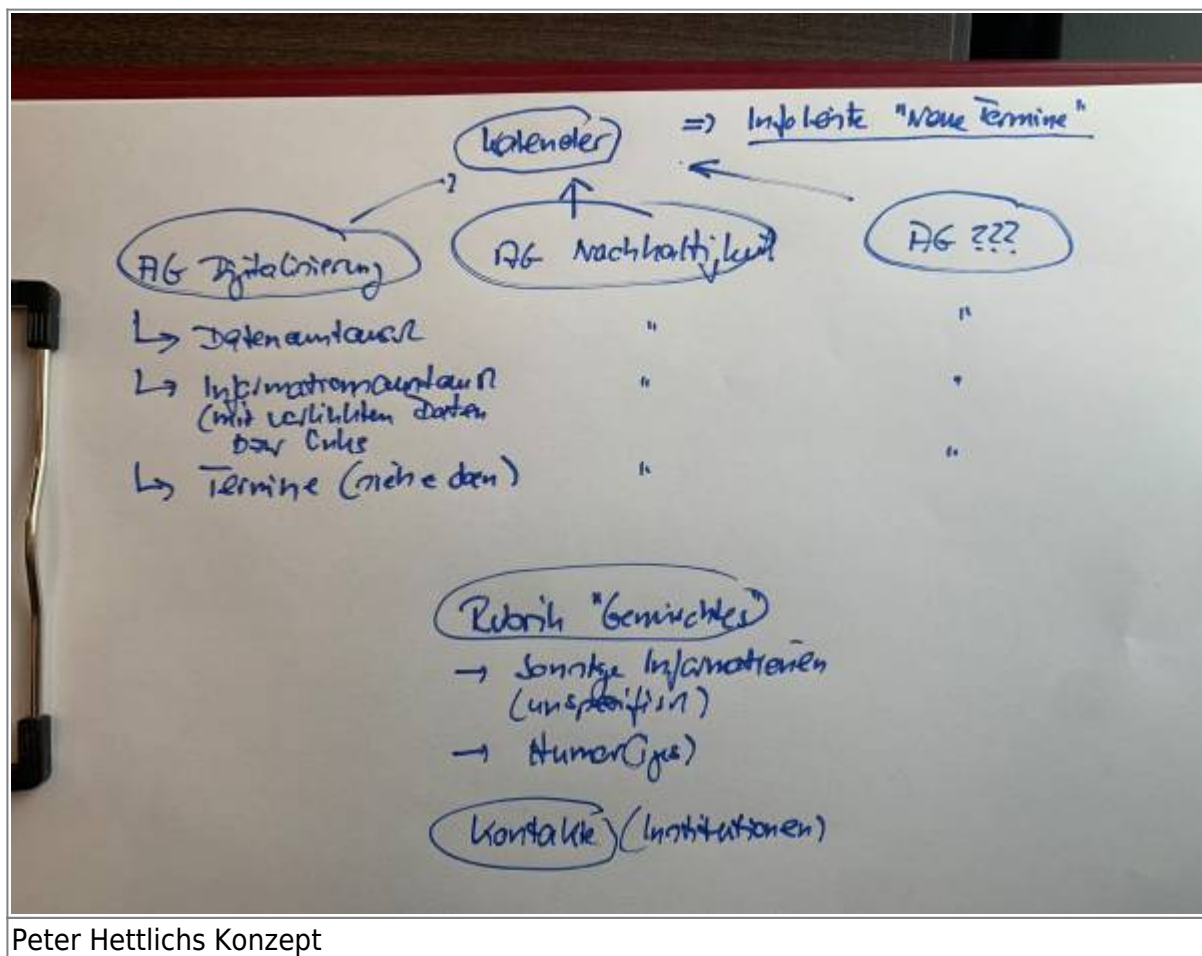 Kalender => Infoleiste "Neue Termine"
AG Digitalisierung AG Nachhaltigkeit AG ???
↳ Datenaustausch " "
↳ Informationsaustausch " "
(mit verlinkten Daten
bzw Links
↳ Termine (siehe oben) " "
Rubrik "Gemischtes"
→ Sonstige Informationen
(unspezifisch)
→ Humor(iges)
Kontakte (Institutionen)
Peter Hettlichs Konzept